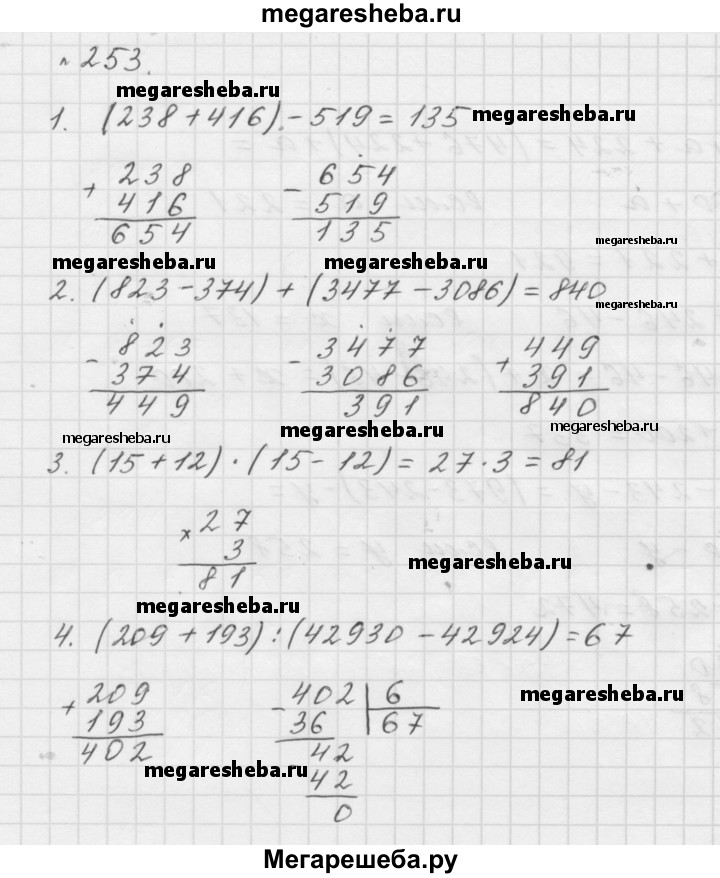 megaresheba.ru
№253.
megaresheba.ru
1. (238+416)-519=135 megaresheba.ru
+ 238 - 654
416 519
654 135
megaresheba.ru
megaresheba.ru megaresheba.ru
2. (823-374)+(3477-3086)=840
megaresheba.ru
- 823 - 3477 + 449
374 3086 391
449 391 840
megaresheba.ru megaresheba.ru
3. (15+12)·(15-12)=27·3=81
× 27
3
81
megaresheba.ru
megaresheba.ru
4. (209+193):(42930-42924)=67
+ 209 - 402 | 6
193 36 67
402 42
42
0
megaresheba.ru
megaresheba.ru
Мегарешеба.ру